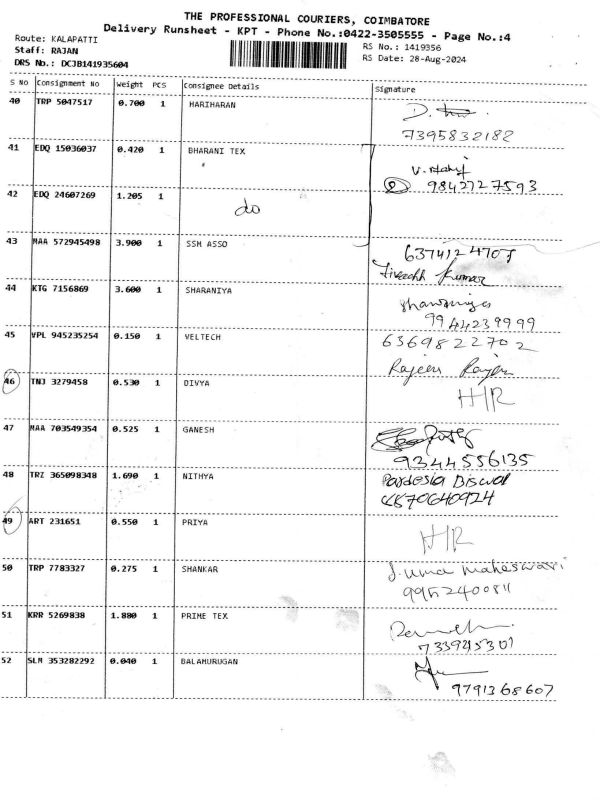 THE PROFESSIONAL COURIERS, COIMBATORE
Delivery Runsheet - KPT - Phone No.:0422-3505555 - Page No.:4
Route: KALAPATTI
Staff: RAJAN
DRS No.: DCJB141935604
RS No.: 1419356
RS Date: 28-Aug-2024
S No Consignment No Weight PCS Consignee Details Signature
40 TRP 5047517 0.700 1 HARIHARAN
7395832182
41 EDQ 15036037 0.420 1 BHARANI TEX
9842727593
42 EDQ 24607269 1.205 1 do
43 MAA 572945498 3.900 1 SSM ASSO
Kumar
44 KTG 7156869 3.600 1 SHARANIYA
9944239999
45 VPL 945235254 0.150 1 VELTECH
6369822702
Rajeev
46 TNJ 3279458 0.530 1 DIVYA
H/R
47 MAA 703549354 0.525 1 GANESH
9344556135
48 TRZ 365098348 1.690 1 NITHYA
Pardesia Biswal
49 ART 231651 0.550 1 PRIYA
H/R
50 TRP 7783327 0.275 1 SHANKAR
J. uma maheswari
51 KRR 5269838 1.880 1 PRIME TEX
7339245301
52 SLM 353282292 0.040 1 BALAMURUGAN
9791368607